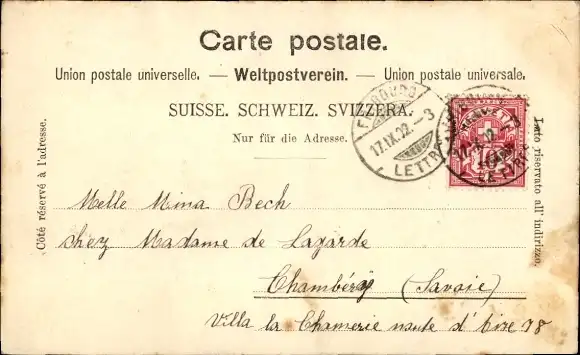 Carte postale.
Union postale universelle. — Weltpostverein. — Union postale universale.
SUISSE. SCHWEIZ. SVIZZERA.
Nur für die Adresse.
Côté réservé à l'adresse.
Lato riservato all' indirizzo.
FRIBOURG
17.IX.02.-3
LETTR.
HELVETIA
10
Melle Mina Bech
chez Madame de Lagarde
Chambéry (Savoie)
Villa la Chamerie route d'
78